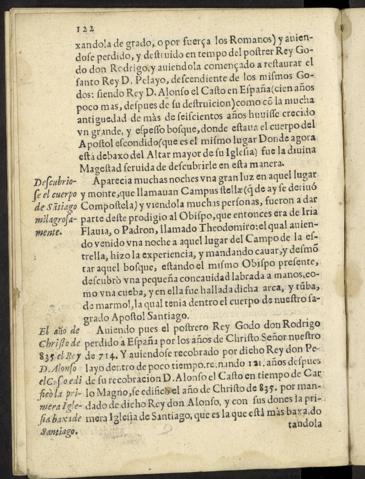 122
xandola de grado, o por fuerça los Romanos) y auien-
dose perdido, y destruido en tiempo del postrer Rey Go-
do don Rodrigo, y auiendola començado a restaurar el
santo Rey D. Pelayo, descendiente de los mismos Go-
dos: siendo Rey D. Alonso el Casto en España (cien años
poco mas, despues de su destruicion) como cõ la mucha
antiguedad de màs de seiscientos años huuisse crecido
vn grande, y espesso bosque, donde estaua el cuerpo del
Apostol escondido (que es el mismo lugar Donde agora
està debaxo del Altar mayor de su Iglesia) fue la diuina
Magestad seruida de descubrirle en esta manera.
Descubrio-
se el cuerpo
de Sãtiago
milagrosa-
mente.
Aparecia muchas noches vna gran luz en aquel lugar
y monte, que llamauan Campus stellæ (q̃ de ay se deriuò
Compostela) y viendola muchas personas, fueron a dar
parte deste prodigio al Obispo, que entonces era de Iria
Flauia, o Padron, llamado Theodomiro: el qual auien-
do venido vna noche a aquel lugar del Campo de la es-
trella, hizo la experiencia, y mandando cauar, y desmõ
tar aquel bosque, estando el mismo Obispo presente,
descubrò vna pequeña concauidad labrada a manos, co-
mo vna cueba, y en ella fue hallada dicha arca, y tũba,
de marmol, la qual tenia dentro el cuerpo de nuestro sa-
grado Apostol Santiago.
El año de
Christo de
835. el Rey
D. Alonso
el Casto edi
ficò la pri-
mera Igle-
sia baxa de
Santiago.
Auiendo pues el postrero Rey Godo don Rodrigo
perdido a España por los años de Christo Señor nuestro
de 714. Y auiendose recobrado por dicho Rey don Pe-
layo dentro de poco tiempo, reynando 121. años despues
de su recobracion D. Alonso el Casto en tiempo de Car
lo Magno, se edificò el año de Christo de 835. por man-
dado de dicho Rey don Alonso, y con sus dones la pri-
mera Iglesia de Santiago, que es la que està màs baxa, do
tandola